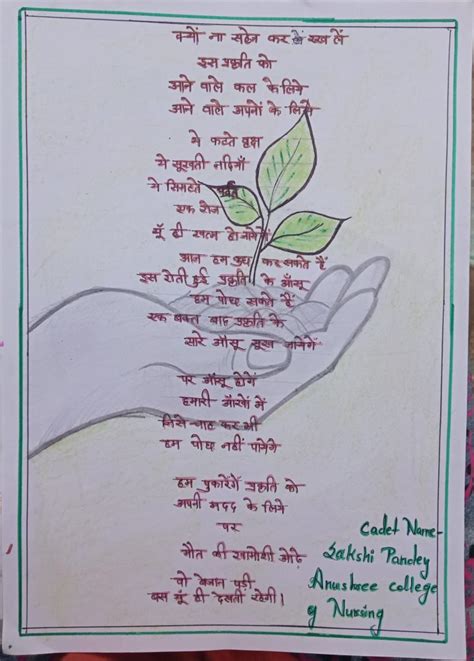 क्यों ना सहेज कर रख लें
इस प्रकृति को
आने वाले कल के लिये
आने वाले अपनों के लिये
ये कटते वृक्ष
ये सूखती नदियाँ
ये सिमटते पर्वत
एक रोज
यूँ ही खत्म हो जायेंगे
आज हम कुछ कर सकते हैं
इस रोती हुई प्रकृति के आँसू
हम पोंछ सकते हैं
एक वक्त बाद प्रकृति के
सारे आँसू सूख जायेगें
पर आँसू होगें
हमारी आँखों में
जिसे चाह कर भी
हम पोछ नहीं पायेगे
हम पुकारेगें प्रकृति को
अपनी मदद के लिये
पर
मौत की खामोशी ओढ़े
वो बेजान पड़ी
बस यूँ ही देखती रहेगी।
Cadet Name-
Sakshi Pandey
Anushree college
of Nursing